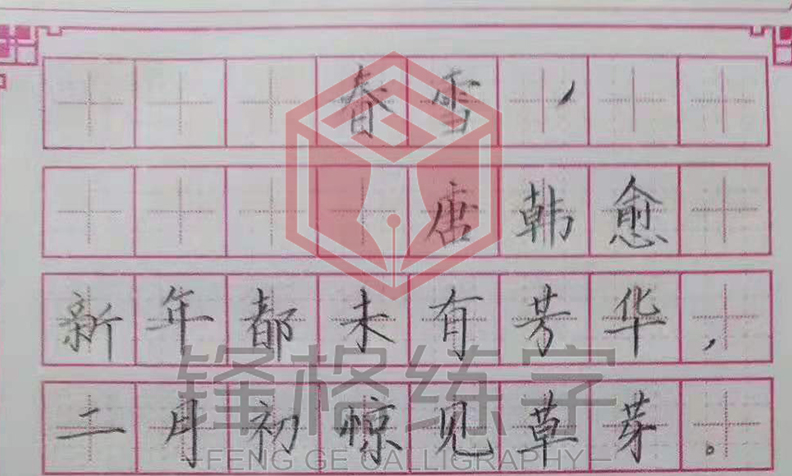 春雪
唐韩愈
新年都未有芳华，
二月初惊见草芽。
锋格练字
FENG GE CALLIGRAPHY